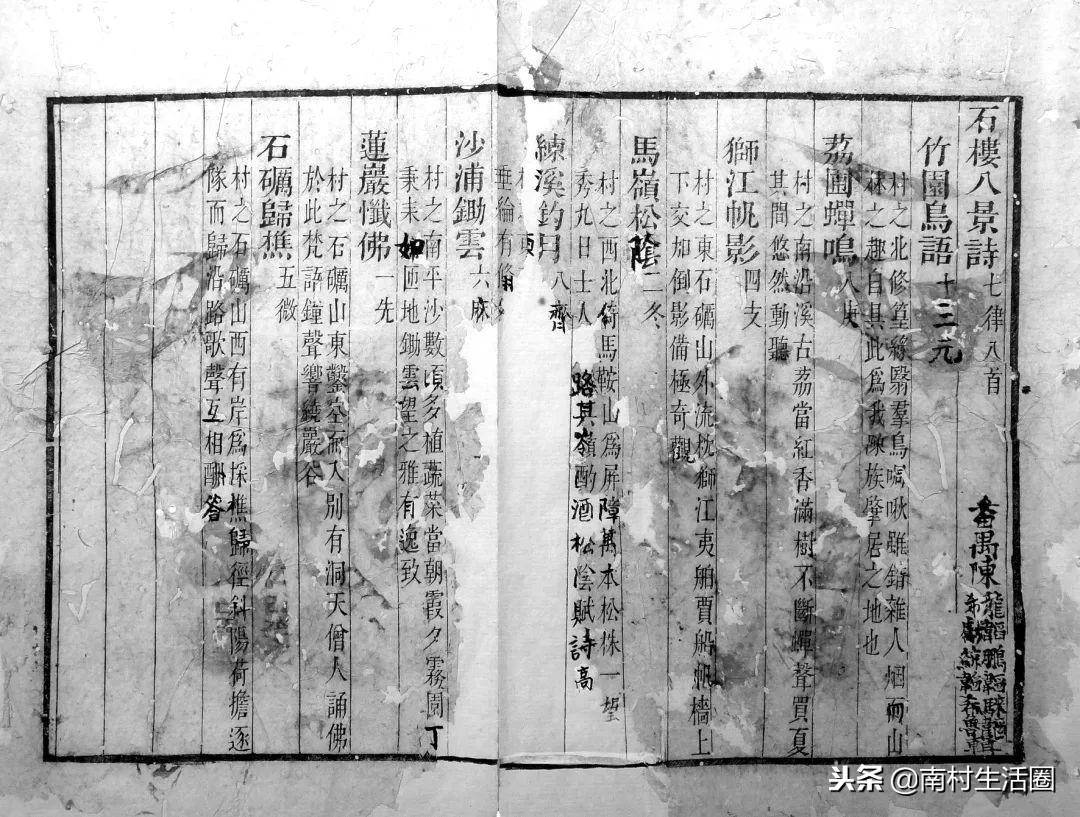 石樓八景詩 七律八首
番禺陳龍韜鵬
竹園鳥語 十三元
村之北修篁綠翳羣鳥啁啾雖錯雜人烟而山
林之趣自具此爲我陳族肇居之地也
荔圃蟬鳴 八庚
村之南沿溪古荔當紅香滿樹不斷蟬聲買夏
其間悠然動聽
獅江帆影 四支
村之東石礪山外流枕獅江夷舶賈船帆檣上
下交加倒影備極奇觀
馬嶺松蔭 二冬
村之西北倚馬鞍山爲屏障萬本松株一望
秀九日士人 路其嶺酌酒松陰賦詩高
練溪釣月 八齊
垂綸有
沙浦鋤雲 六麻
村之南平沙數頃多植蔬菜當朝霞夕霧園丁
秉耒如匝地鋤雲望之雅有逸致
蓮巖懺佛 一先
村之石礪山東鑿空而入別有洞天僧人誦佛
於此梵語鐘聲響繞巖谷
石礪歸樵 五微
村之石礪山西有岸爲採樵歸徑斜陽荷擔逐
隊而歸沿路歌聲互相酬答
头条 @南村生活圈